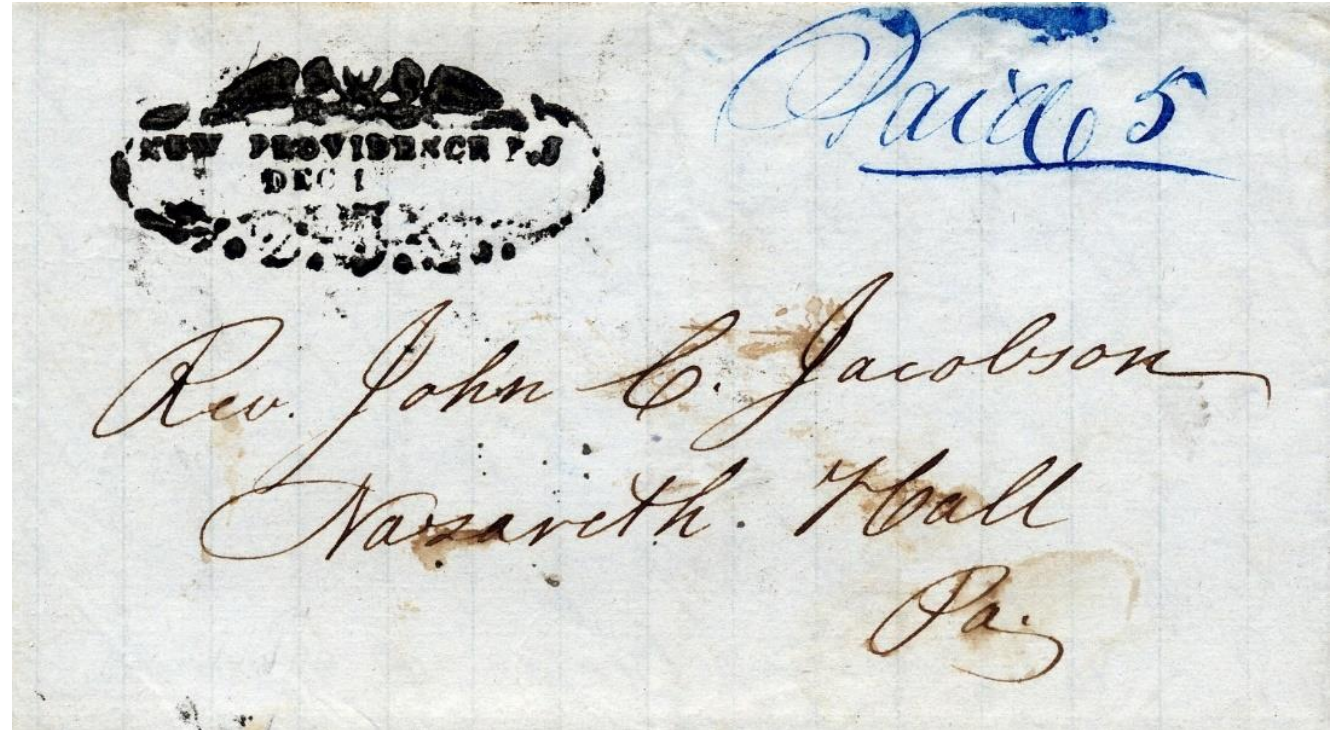 NEW PROVIDENCE N.J
DEC 1
Paid 5
Rev. John C. Jacobson
Nazareth. Hall
Pa.